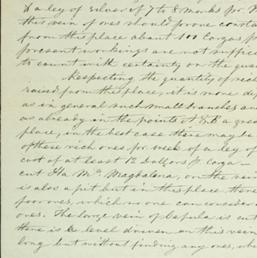 a ley of silver of 7 to 8 marks for
this vein of ores should prove consta
from this place about 100 Cargas p
present workings are not suffic
to count with certainty on the quan
Respecting the quantity of rich
raised from this place, it is more de
as in general such small branches an
as already in the points a grea
place, in the best case there may be
of these rich ores per week of a ley of
cost of at least 12 Dollars p carga
cut Ha Ma Magdalena, on the vein
is also a pit but in this place there
poor ores, which no one can consider
ores. The large vein of is cut
there is a level driven on this vein
long but without finding any ores, wh